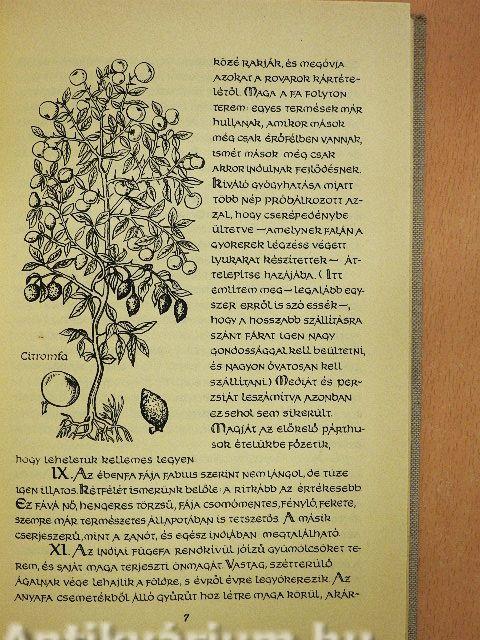 közé rakják, és megóvja
azokat a rovarok kártéte-
létől. Maga a fa folyton
terem: egyes termések már
hullanak, amikor mások
még csak érőfélben vannak,
ismét mások még csak
akkor indulnak fejlődésnek.
Kiváló gyógyhatása miatt
több nép próbálkozott az-
zal, hogy cserépedénybe
ültetve — amelynek falán a
gyökerek légzése végett
lyukakat készítettek — át-
telepítse hazájába. (Itt
említem meg — legalább egy-
szer erről is szó essék —,
hogy a hosszabb szállításra
szánt fákat igen nagy
gondossággal kell beültetni,
és nagyon óvatosan kell
szállítani.) Médiát és Per-
zsiát leszámítva azonban
ez sehol sem sikerült.
Magját az előkelő párthu-
sok ételükbe főzetik,
Citromfa
hogy leheletük kellemes legyen.
IX. Az ébenfa fája Fabius szerint nem lángol, de tüze
igen illatos. Kétfélét ismerünk belőle: a ritkább az értékesebb.
Ez fává nő, hengeres törzsű, fája csomómentes, fénylő, fekete,
szemre már természetes állapotában is tetszetős. A másik
cserjeszerű, mint a zanót, és egész Indiában megtalálható.
XI. Az indiai fügefa rendkívül jóízű gyümölcsöket te-
rem, és saját maga terjeszti önmagát. Vastag, szétterülő
ágainak vége lehajlik a földre, s évről évre legyökerezik. Az
anyafa csemetékből álló gyűrűt hoz létre maga körül, akár-
7
Antikvárium.hu